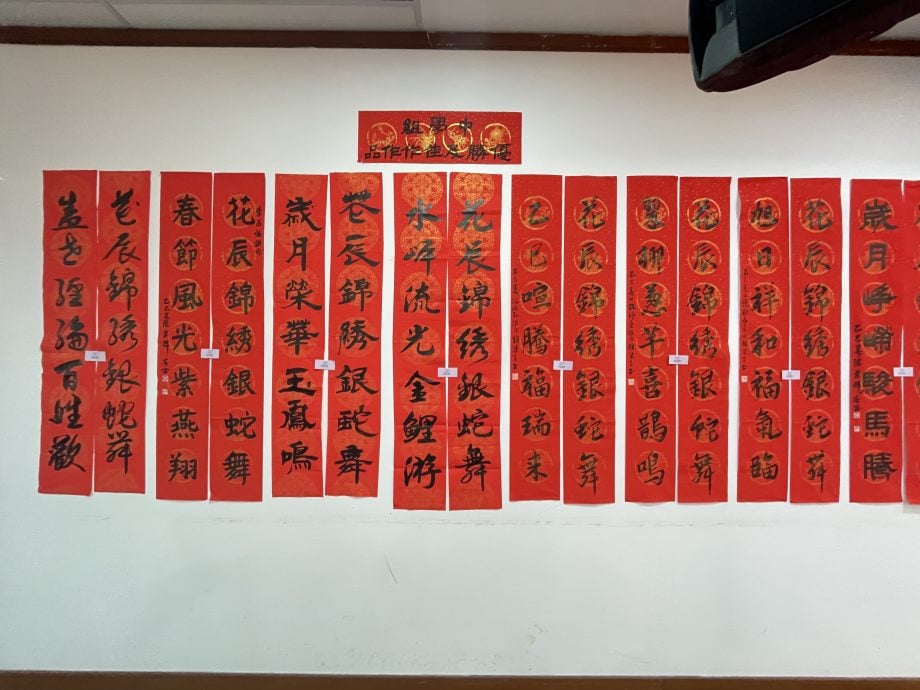 中學組
優勝及佳作作品
歲月崢嶸駿馬騰
花辰錦綉銀蛇舞
旭日祥和福氣臨
花辰錦綉銀蛇舞
翠柳葱芊喜鵲鳴
花辰錦綉銀蛇舞
乙巳喧騰福瑞来
花辰錦綉銀蛇舞
水岸流光金鯉游
花辰錦綉銀蛇舞
歲月榮華玉鳳鳴
花辰錦綉銀蛇舞
春節風光紫燕翔
花辰錦綉銀蛇舞
盖世經綸百姓歡